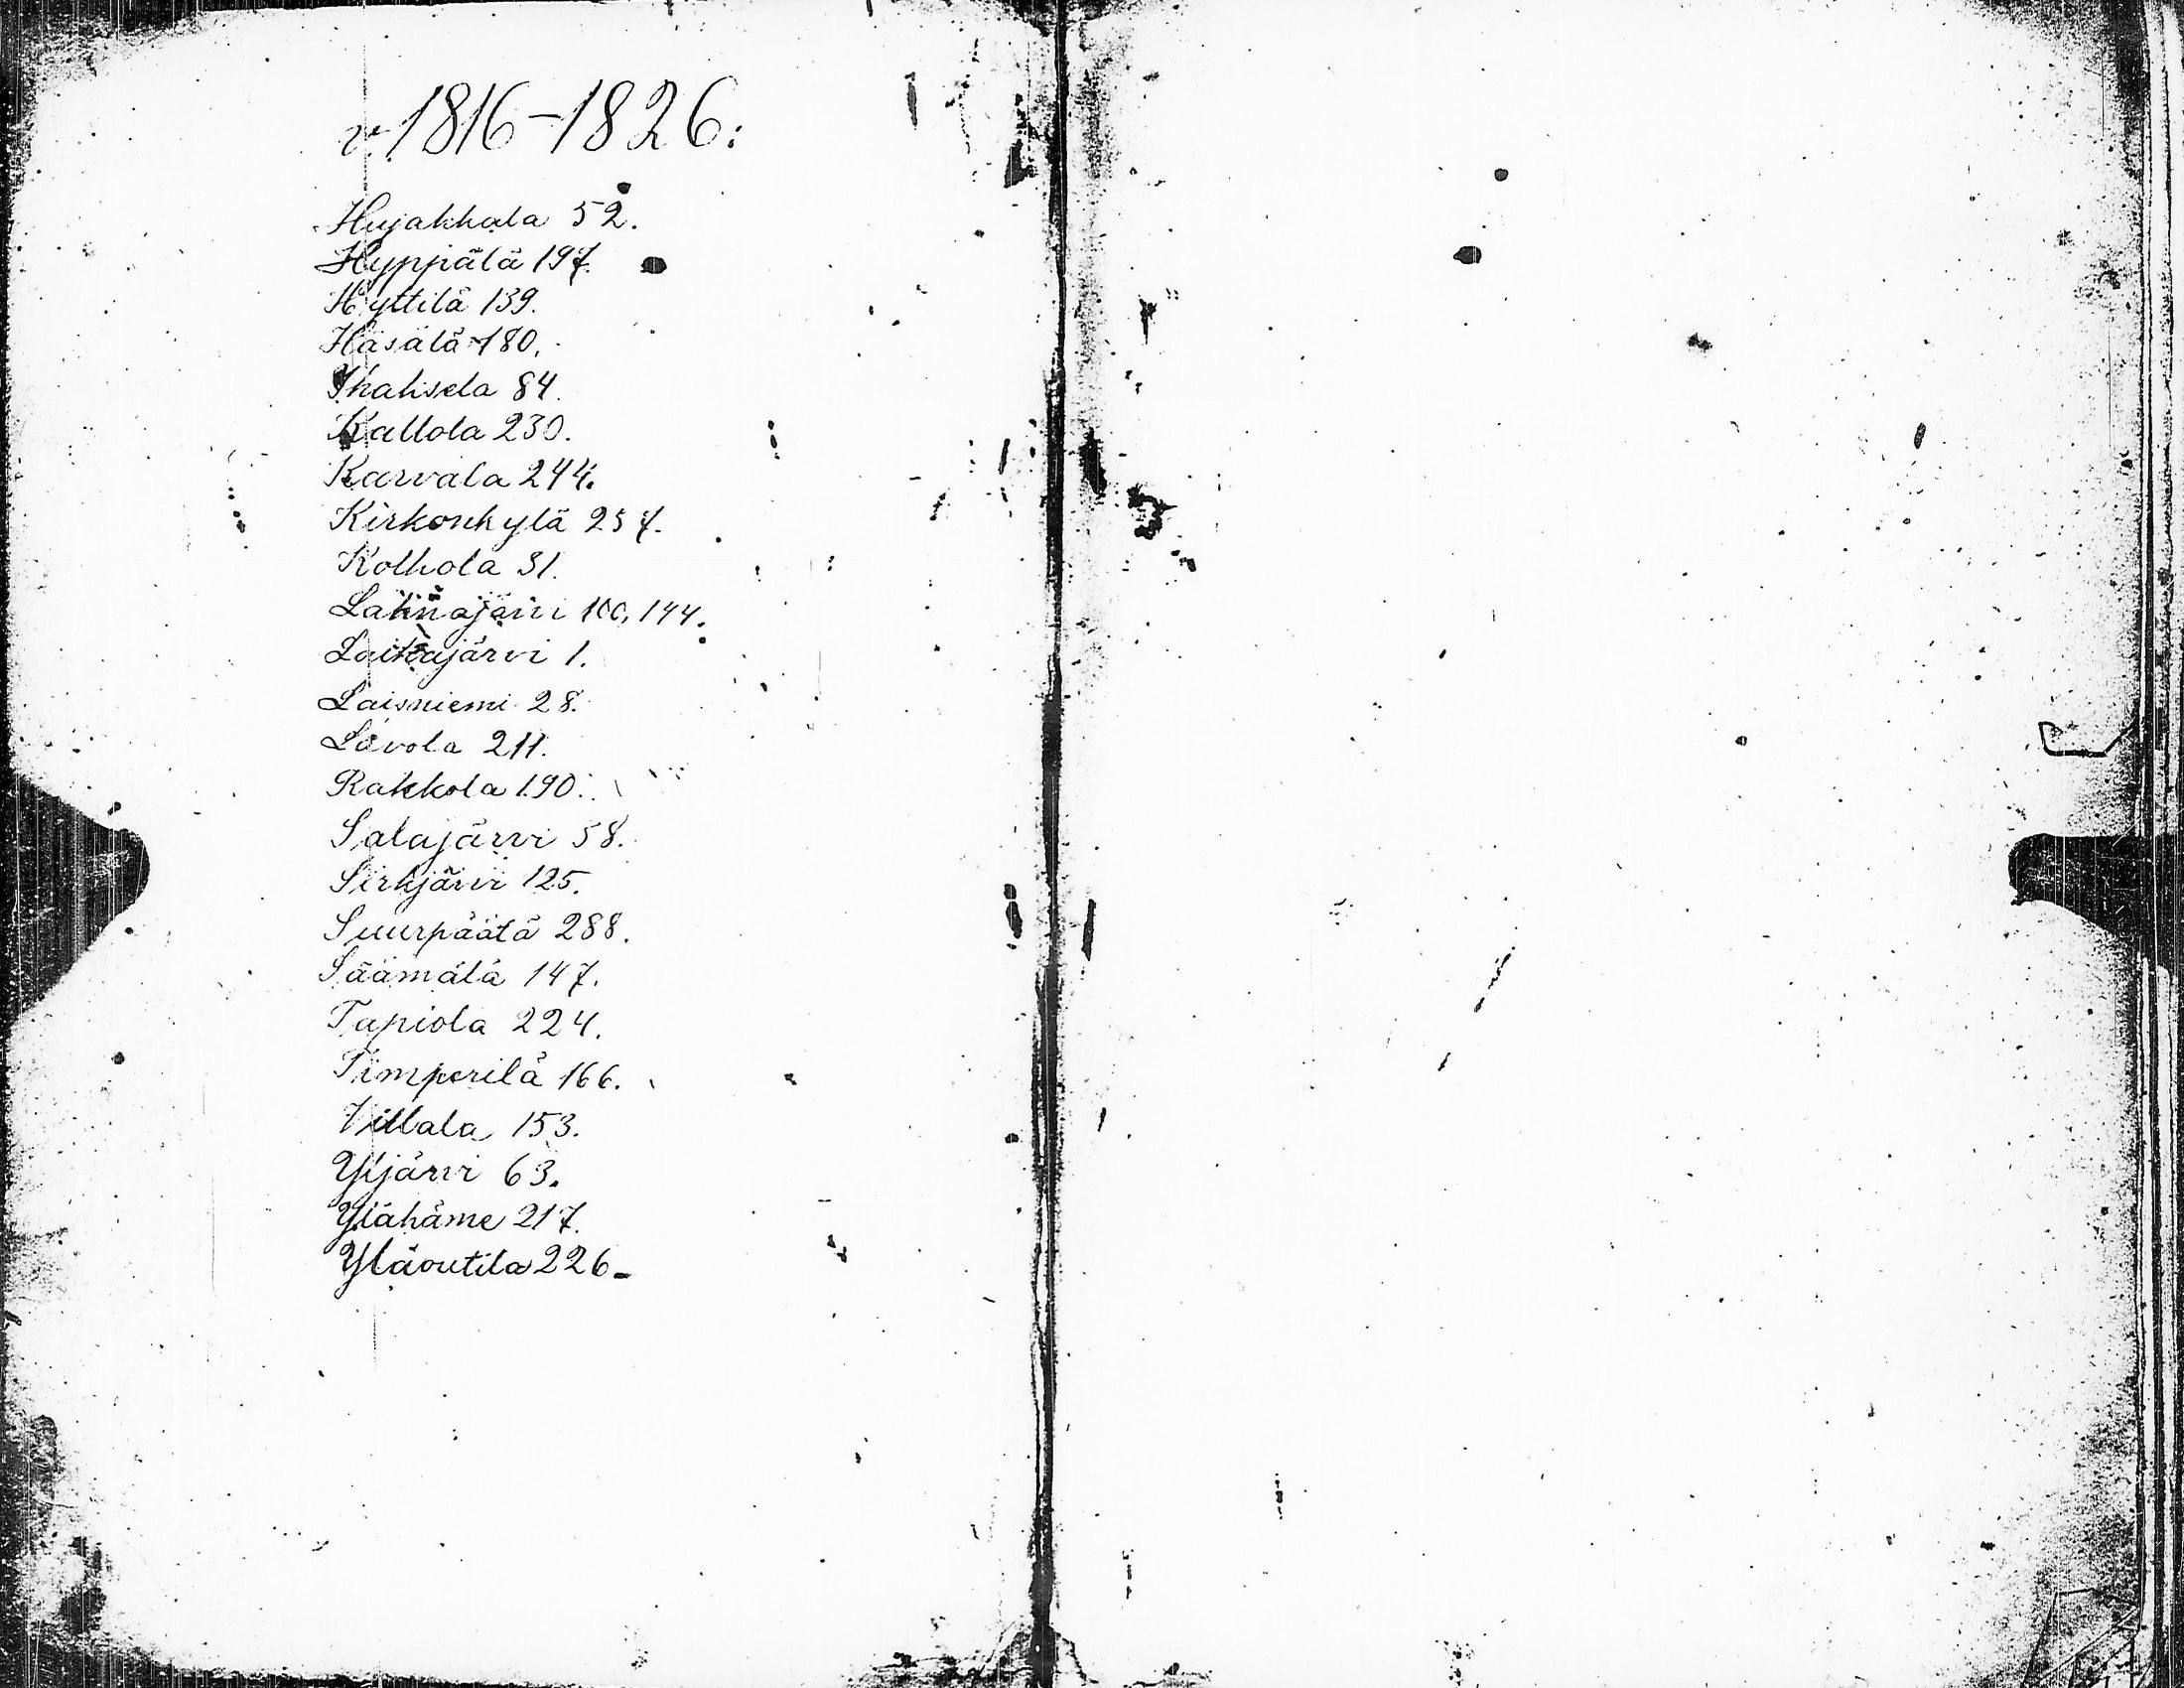 v. 1816-1826:
Hujakkala 52.
Hyppälä 197.
Hyttilä 139.
Häsälä 180.
Ihaksela 84.
Kallola 230.
Karvala 244.
Kirkonkylä 257.
Kolhola 31.
Lahnajärvi 100, 144.
Laihajärvi 1.
Laisniemi 28.
Lavola 211.
Rakkola 190.
Salajärvi 58.
Sirkjärvi 125.
Suurpäälä 288.
Säämälä 147.
Tapiola 224.
Timperilä 166.
Villala 153.
Ylijärvi 63.
Ylähäme 217.
Yläoutila 226.